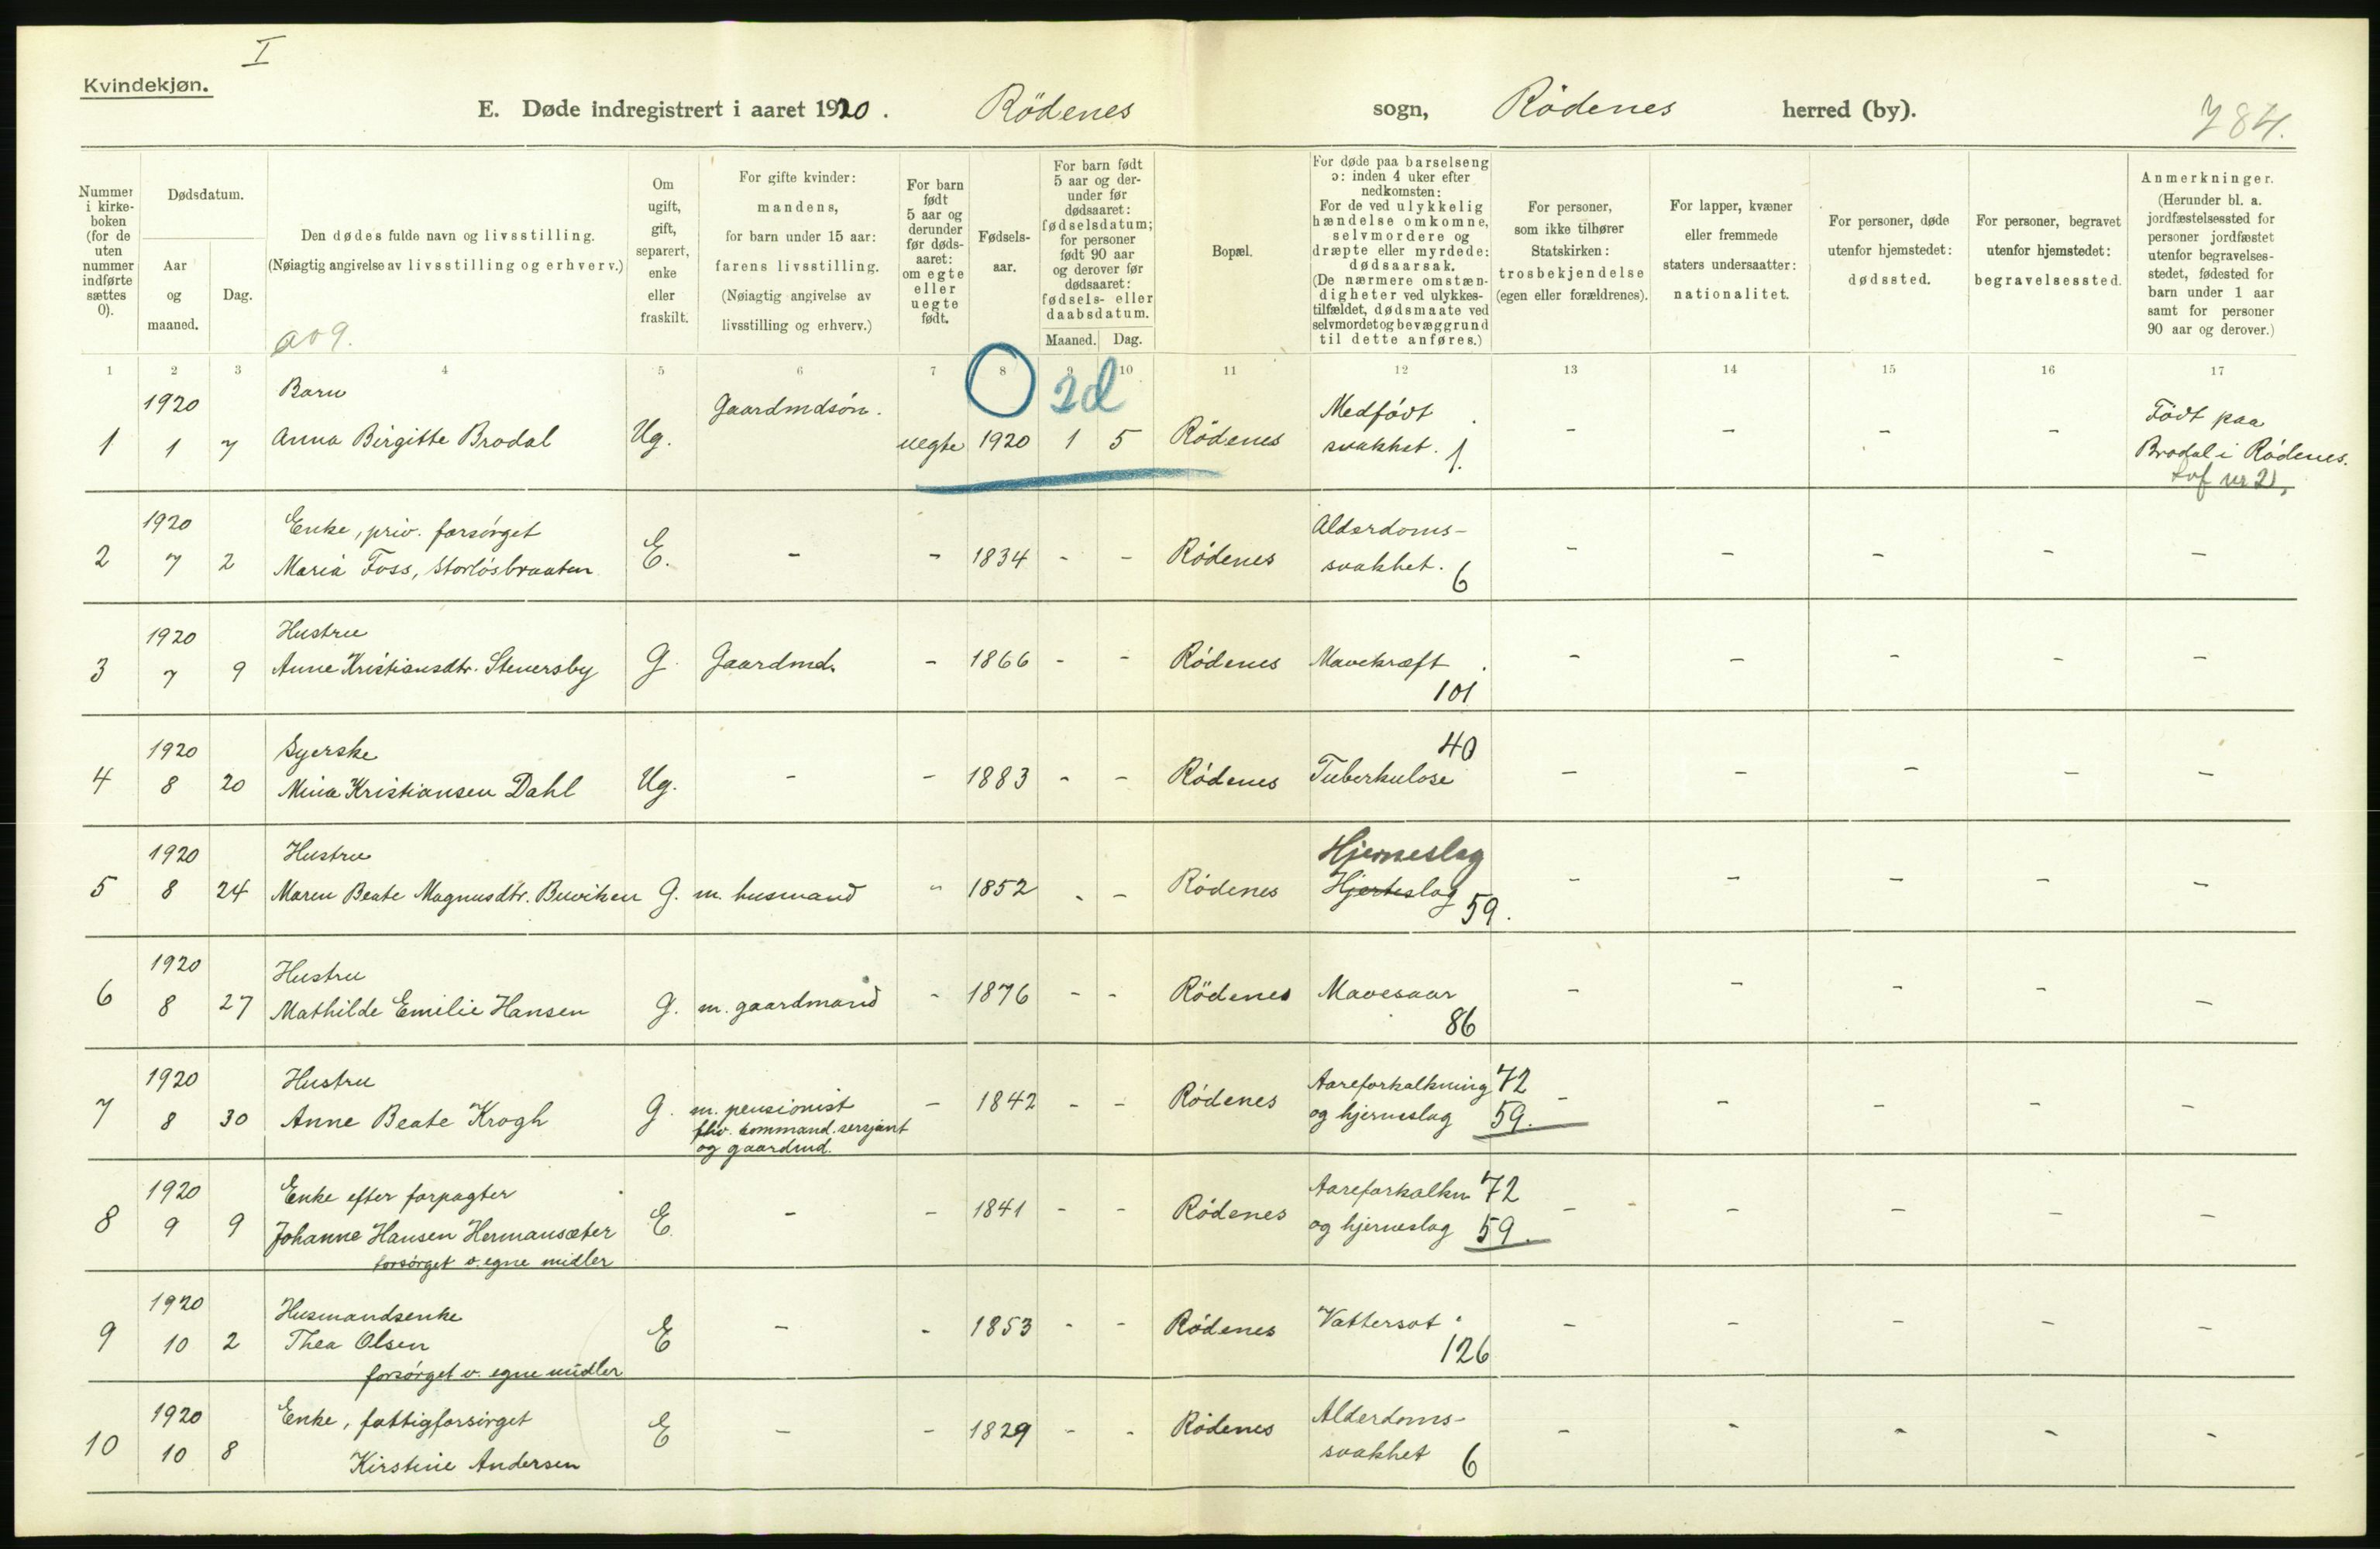 I
Kvindekjøn.
E. Døde indregistrert i aaret 1920. Rödenes sogn, Rödenes herred (by).
784.
Nummer i kirke-boken (for de uten nummer indførte sættes 0).
Dødsdatum.
Aar og maaned.
Dag.
Den dødes fulde navn og livsstilling.
(Nøiagtig angivelse av livsstilling og erhverv.)
Om ugift, gift, separert, enke eller fraskilt.
For gifte kvinder: mandens, for barn under 15 aar: farens livsstilling. (Nøiagtig angivelse av livsstilling og erhverv.)
For barn født 5 aar og derunder før døds-aaret: om egte eller uegte født.
Fødsels-aar.
For barn født 5 aar og der-under før dødsaaret: fødselsdatum; for personer født 90 aar og derover før dødsaaret: fødsels- eller daabsdatum.
Maaned. Dag.
Bopæl.
For døde paa barselseng ɔ: inden 4 uker efter nedkomsten: For de ved ulykkelig hændelse omkomne, selvmordere og dræpte eller myrdede: dødsaarsak. (De nærmere omstæn-digheter ved ulykkes-tilfældet, dødsmaate ved selvmordet og bevæggrund til dette anføres.)
For personer, som ikke tilhører Statskirken: trosbekjendelse (egen eller forældrenes).
For lapper, kvæner eller fremmede staters undersaatter: nationalitet.
For personer, døde utenfor hjemstedet: dødssted.
For personer, begravet utenfor hjemstedet: begravelsessted.
Anmerkninger. (Herunder bl. a. jordfæstelsessted for personer jordfæstet utenfor begravelses-stedet, fødested for barn under 1 aar samt for personer 90 aar og derover.)
1 2 3 4 5 6 7 8 9 10 11 12 13 14 15 16 17
2d
1920 Barn Gaardmdsön. Medfödt Födt paa
1 1 7 Anna Birgitte Brodal Ug. uegte 1920 1 5 Rödenes svakhet. 1. - - - - Brodal i Rödenes.
Lof nr 21,
1920 Enke, priv. forsörget Alderdoms-
2 7 2 Maria Foss, Storlösbraaten E. - - 1834 - - Rödenes svakhet. 6 - - - - -
1920 Hustru
3 7 9 Anne Kristiansdtr. Stenersby G. Gaardmd. - 1866 - - Rödenes Mavekræft - - - - -
101
1920 Syerske 40
4 8 20 Mina Kristiansen Dahl Ug. - - 1883 - - Rödenes Tuberkulose - - - - -
1920 Hustru Hjerneslag
5 8 24 Maren Beate Magnusdtr. Buviken G. m. husmand - 1852 - - Rödenes Hjerteslag 59. - - - - -
1920 Hustru
6 8 27 Mathilde Emilie Hansen G. m. gaardmand - 1876 - - Rödenes Mavesaar - - - - -
86
1920 Hustru Aareforkalkning 72
7 8 30 Anne Beate Krogh G. m. pensionist - 1842 - - Rödenes og hjerneslag 59. - - - - -
command. sersjant
og gaardmd.
1920 Enke efter forpagter Aareforkalkn 72
8 9 9 Johanne Hansen Hermansæter E. - - 1841 - - Rödenes og hjerneslag 59. - - - - -
forsörget v. egne midler
1920 Husmandsenke
9 10 2 Thea Olsen E - - 1853 - - Rödenes Vattersot. - - - - -
forsörget v. egne midler 126
1920 Enke, fattigforsörget Alderdoms-
10 10 8 Kirstine Andersen E - - 1829 - - Rödenes svakhet 6 - - - - -